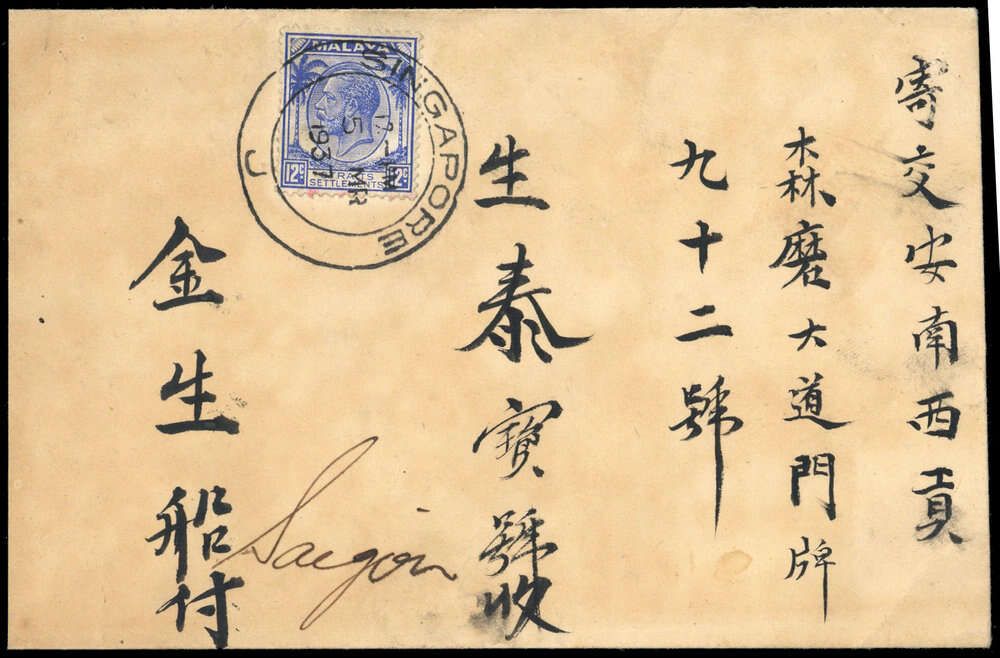 寄交安南西貢
森磨大道門牌
九十二號
生泰寳號收
金生船付
Saigon
MALAYA
12c
STRAITS
SETTLEMENTS
12c
SINGAPORE
5 MR
1937